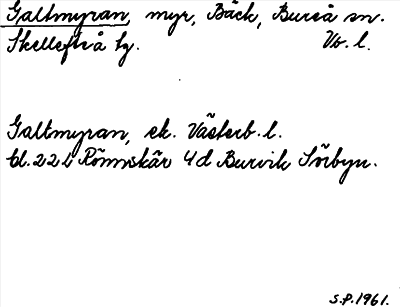 Galtmyran, myr, Bäck, Bureå sn.
Skellefteå tg. Vb. l.
Galtmyran, ek. Västerb. l.
bl. 22 L Rönnskär 4d Burvik Sörbyn.
S.P. 1961.